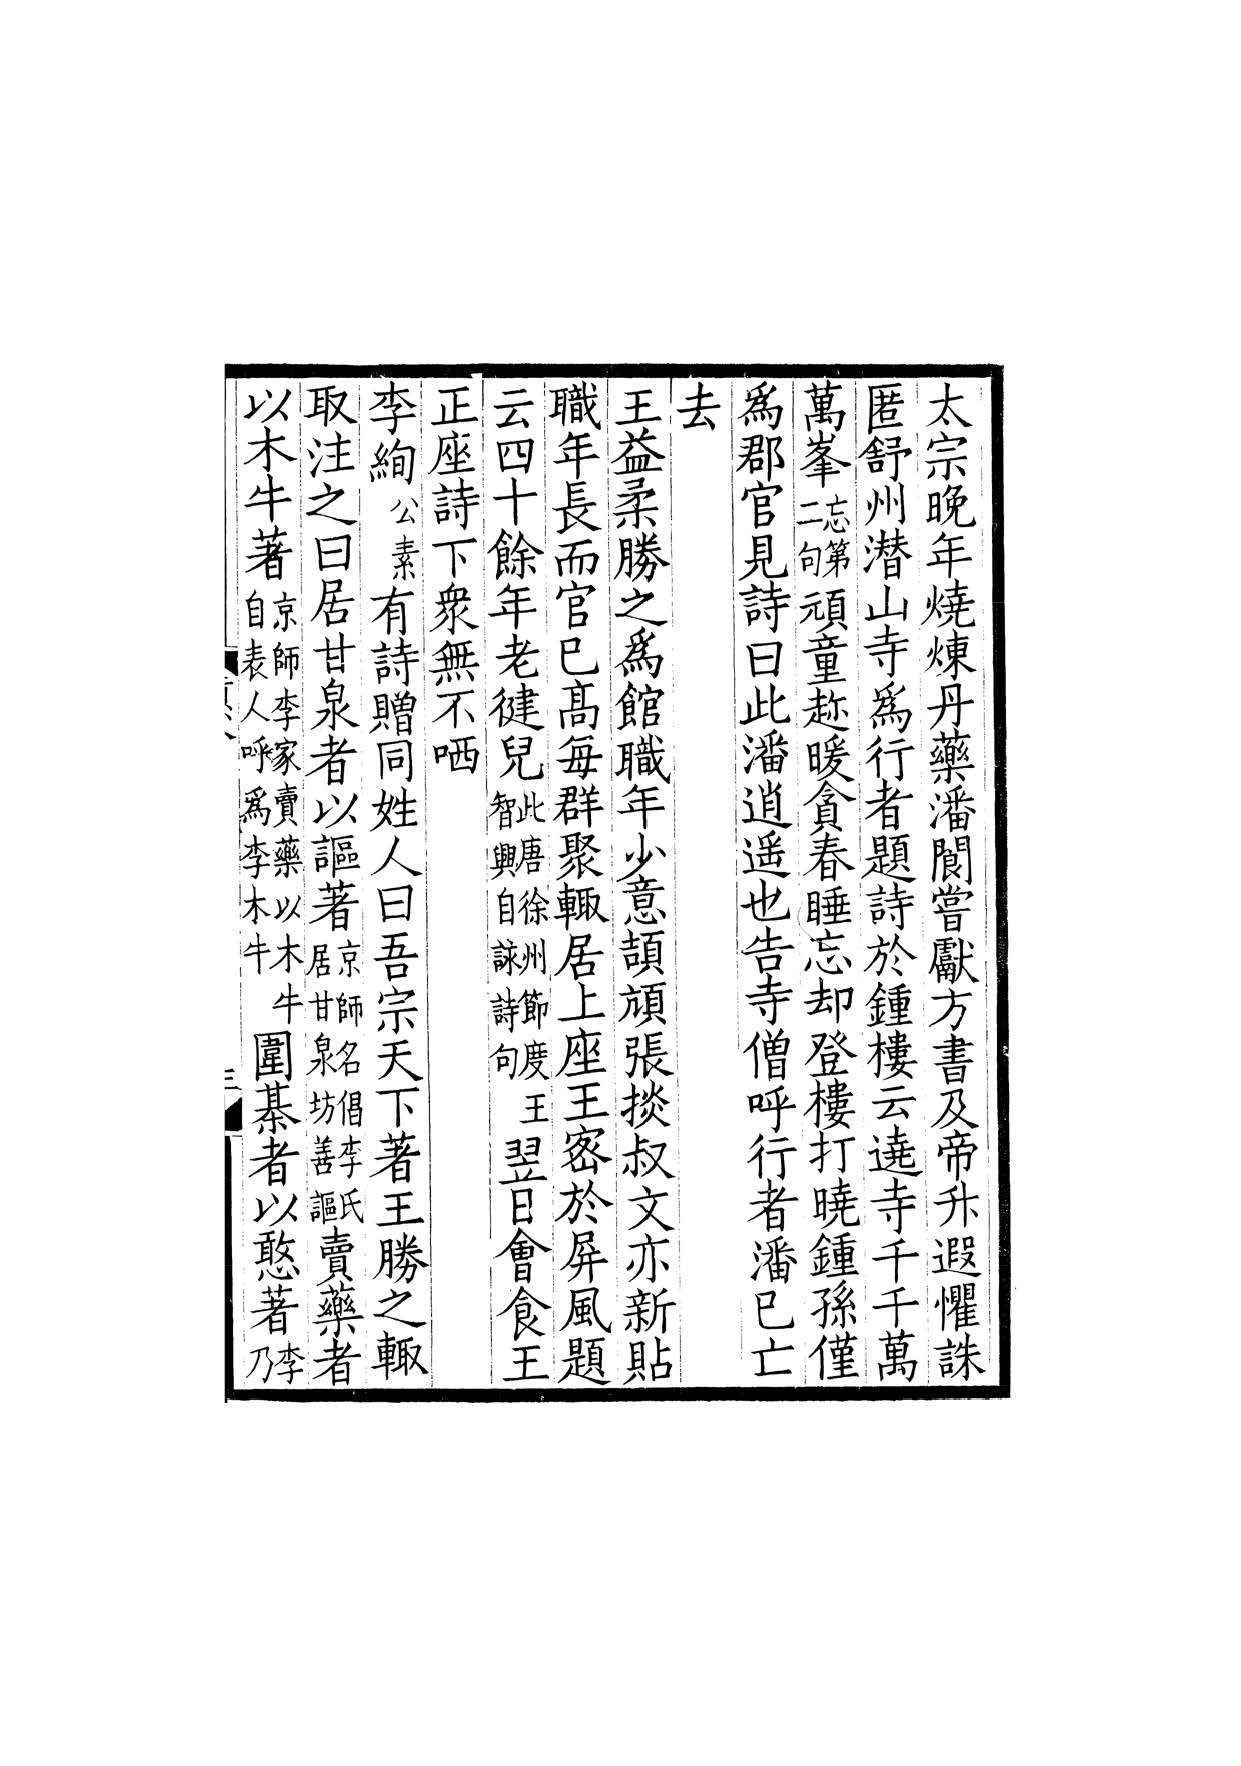 太宗晚年燒煉丹藥潘閬嘗獻方書及帝升遐懼誅
匿舒州潛山寺爲行者題詩於鍾樓云遶寺千千萬
萬峯忘第二句頑童趂暖貪春睡忘却登樓打曉鍾孫僅
爲郡官見詩曰此潘逍遥也告寺僧呼行者潘已亡
去
王益柔勝之爲館職年少意頡頏張掞叔文亦新貼
職年長而官已髙每群聚輙居上座王密於屏風題
云四十餘年老健兒此唐徐州節度王智興自詠詩句翌日會食王
正座詩下衆無不哂
李絢公素有詩贈同姓人曰吾宗天下著王勝之輙
取注之曰居甘泉者以謳著京師名倡李氏居甘泉坊善謳賣藥者
以木牛著京師李家賣藥以木牛自表人呼爲李木牛圍棊者以憨著李乃
三